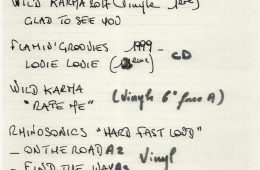 WILD KARMA 2017 (Vinyle
GLAD TO SEE YOU
FLAMIN' GROOVIES 1999 - CD
LOUIE LOUIE (
WILD KARMA (Vinyle 6° face A)
"RAPE ME"
RHINOSONICS "HARD FAST LOUD"
_ ON THE ROAD A2 Vinyl
_ FIND THE WAY A3